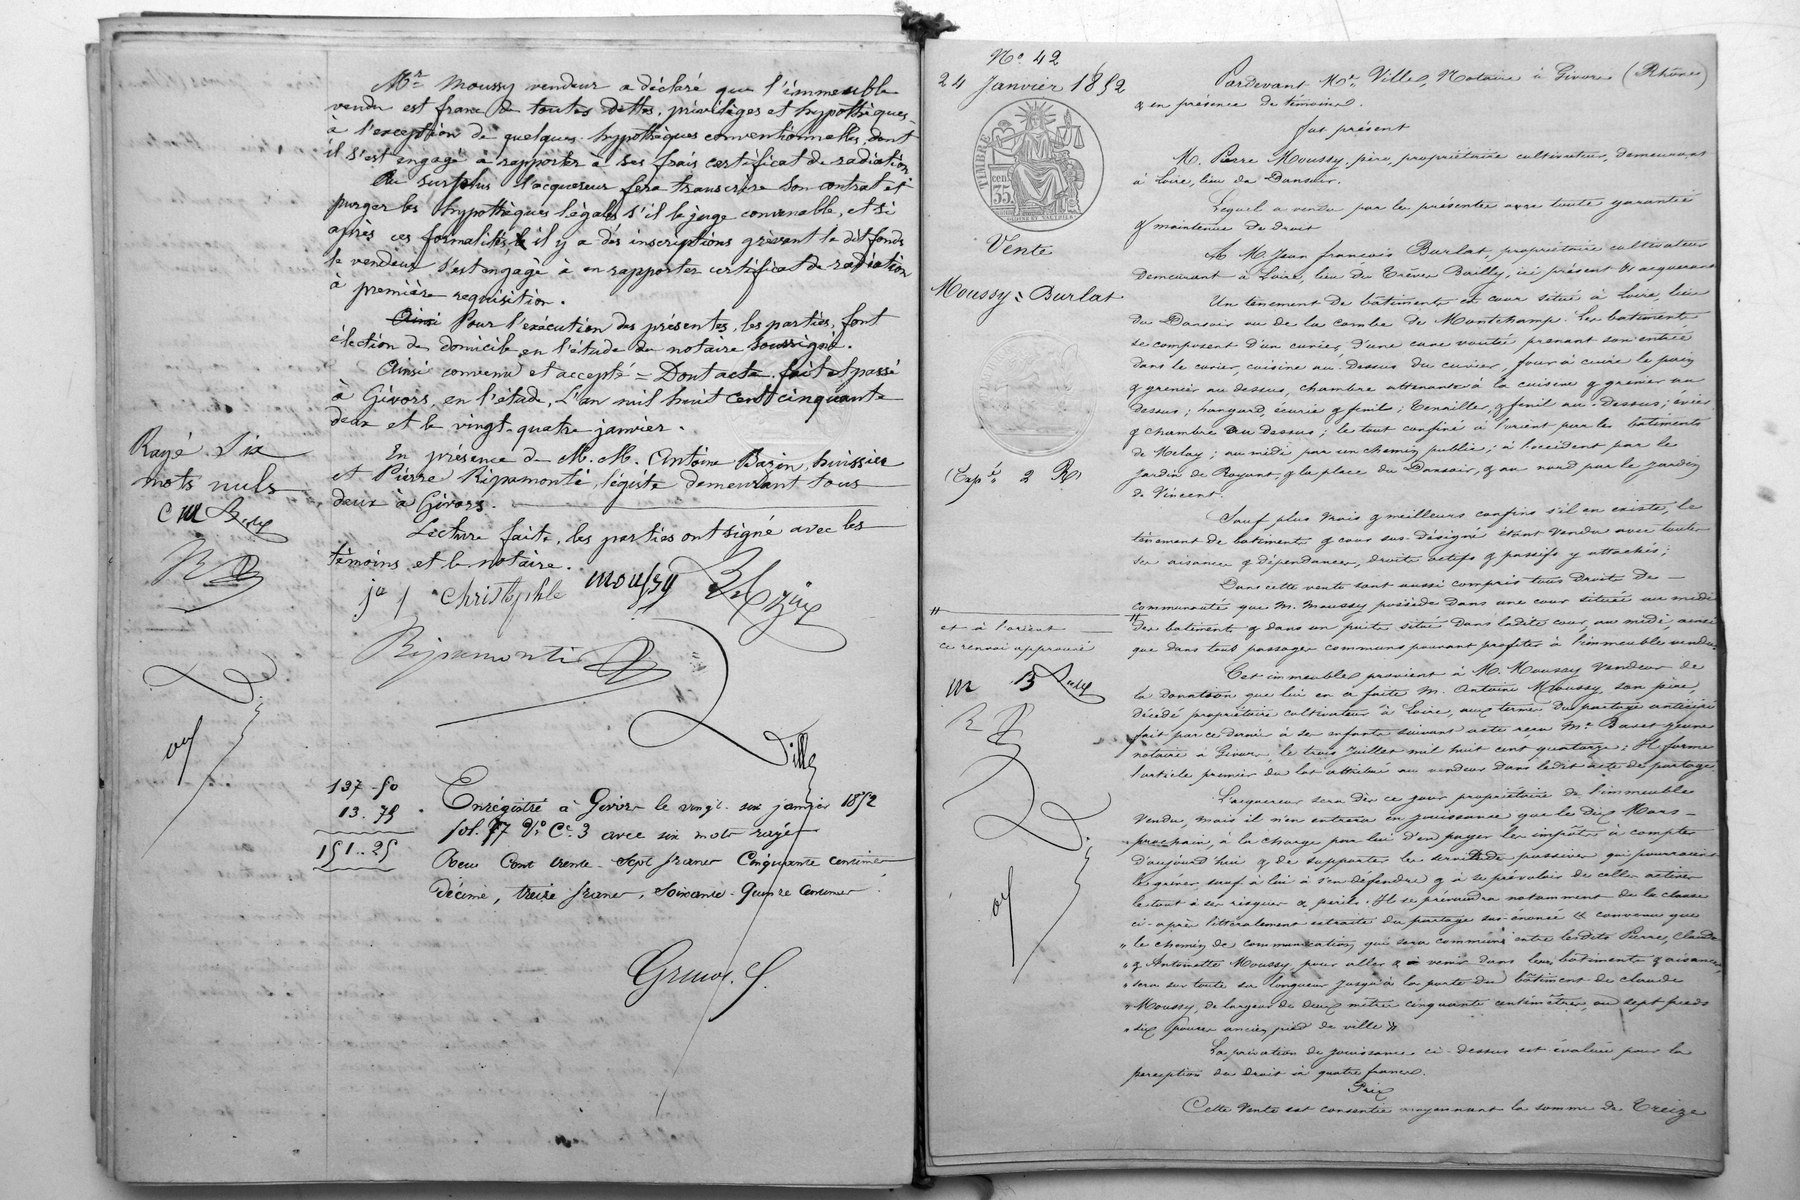 Mr Moussy vendeur a déclaré que l'immeuble
vendu est franc de toutes dettes, privilèges et hypothèques
à l'exception de quelques hypothèques conventionnelles, dont
il s'est engagé à rapporter à ses frais certificat de radiation.
Au surplus l'acquéreur fera transcrire son contrat et
purger les hypothèques légales s'il le juge convenable, et si
après ces formalités il y a des inscriptions grèvant le dit fonds
le vendeur s'est engagé à en rapporter certificat de radiation
à première requisition.
Ainsi Pour l'exécution des présentes, les parties, font
élection de domicile en l'étude du notaire soussigné.
Ainsi convenu et accepté = Dont acte fait et passé
à Givors, en l'étude, L'an mil huit cent cinquante
deux et le vingt-quatre janvier.
En présence de M. M. Antoine Bazin, huissier
et Pierre Ripamonti, légiste demeurant tous
deux à Givors.
Lecture faite, les parties ont signé avec les
témoins et le notaire.
Rayé Six
mots nuls
C M
Christophle Moussy
Ripamonti
Ville
137-50
13.75
151..25
Enregistré à Givors le vingt-six janvier 1852
fol. 77 Vo Ce 3 avec six mots rayés
Recu Cent trente-Sept francs Cinquante centimes
Décime, treize francs, Soixante-Quinze Centimes
No 42
24 Janvier 1852
TIMBRE
35 cent
Vente
Moussy = Burlat
Expée 2 R
et à l'orient
ce renvoi approuvé
M B
Pardevant Me Ville, Notaire à Givors (Rhône)
& en présence de témoins.
fut présent
M. Pierre Moussy, père, propriétaire cultivateur, demeurant
à Loire, lieu du Dansoir.
Lequel a vendu par les présentes avec toute garantie
& maintenue de droit
A M. Jean françois Burlat, propriétaire cultivateur
demeurant à Loire, lieu du Trève Bailly, ici présent & acquérant
Un tènement de bâtiments et cour situé à Loire, lieu
du Dansoir ou de la combe de Montchamp. Les batiments
se composent d'un cuvier, d'une cave voutée prenant son entrée
dans le cuvier, cuisine au-dessus du cuvier, four à cuire le pain
& grenier au dessus, chambre attenante à la cuisine & grenier au
dessus; hangard, écurie & fenil; & fenil au-dessus;
& chambre au dessus; le tout confiné à l'orient par les bâtiments
de Melay; au midi par un chemin public; à l'occident par le
jardin de Royant, & la place du Dansoir, & au nord par le jardin
de Vincent.
Sauf plus vrais & meilleurs confins s'il en existe, le
tènement de batiments & cour sus-désigné étant vendu avec toutes
ses aisances & dépendances, droits actifs & passifs y attachés;
Dans cette vente sont aussi compris tous droits de
communauté que M. Moussy possède dans une cour située au midi
des batiments & dans un puits situé dans ladite cour, au midi, ainsi
que dans tous passages communs pouvant profiter à l'immeuble vendu.
Cet immeuble provient à M. Moussy vendeur de
la donation que lui en a faite M. Antoine Moussy, son père,
décédé propriétaire cultivateur à Loire, aux termes du partage anticipé
fait par ce dernier à ses enfants suivant acte reçu Me jeune
notaire à Givors, le trois Juillet mil huit cent quatorze; Il forme
l'article premier du lot attribué au vendeur dans ledit acte de partage.
L'acquéreur sera dès ce jour propriétaire de l'immeuble
vendu, mais il n'en entrera en jouissance que le dix Mars
prochain, à la charge par lui d'en payer les impôts à compter
d'aujourd'hui & de supporter les servitudes passives qui pourraient
le grèver, sauf à lui à s'en défendre & à se prévaloir de celles actives
le tout à ses risques & périls. Il se prévaudra notamment de la clause
ci-après littéralement extraite du partage sus-énoncé « convenu que
« le chemin de communication qui sera commun entre lesdits Pierre, Claude
« & Antoinette Moussy pour aller & venir dans leurs bâtiments & aisances,
« sera sur toute sa longueur jusqu'à la porte du bâtiment de Claude
« Moussy, de largeur de deux mètres cinquante centimètres, ou sept pieds
« six pouces ancien pied de ville »
La privation de jouissance ci-dessus est évaluée pour la
perception du droit à quatre francs.
Prix
Cette vente est consentie moyennant la somme de Treize